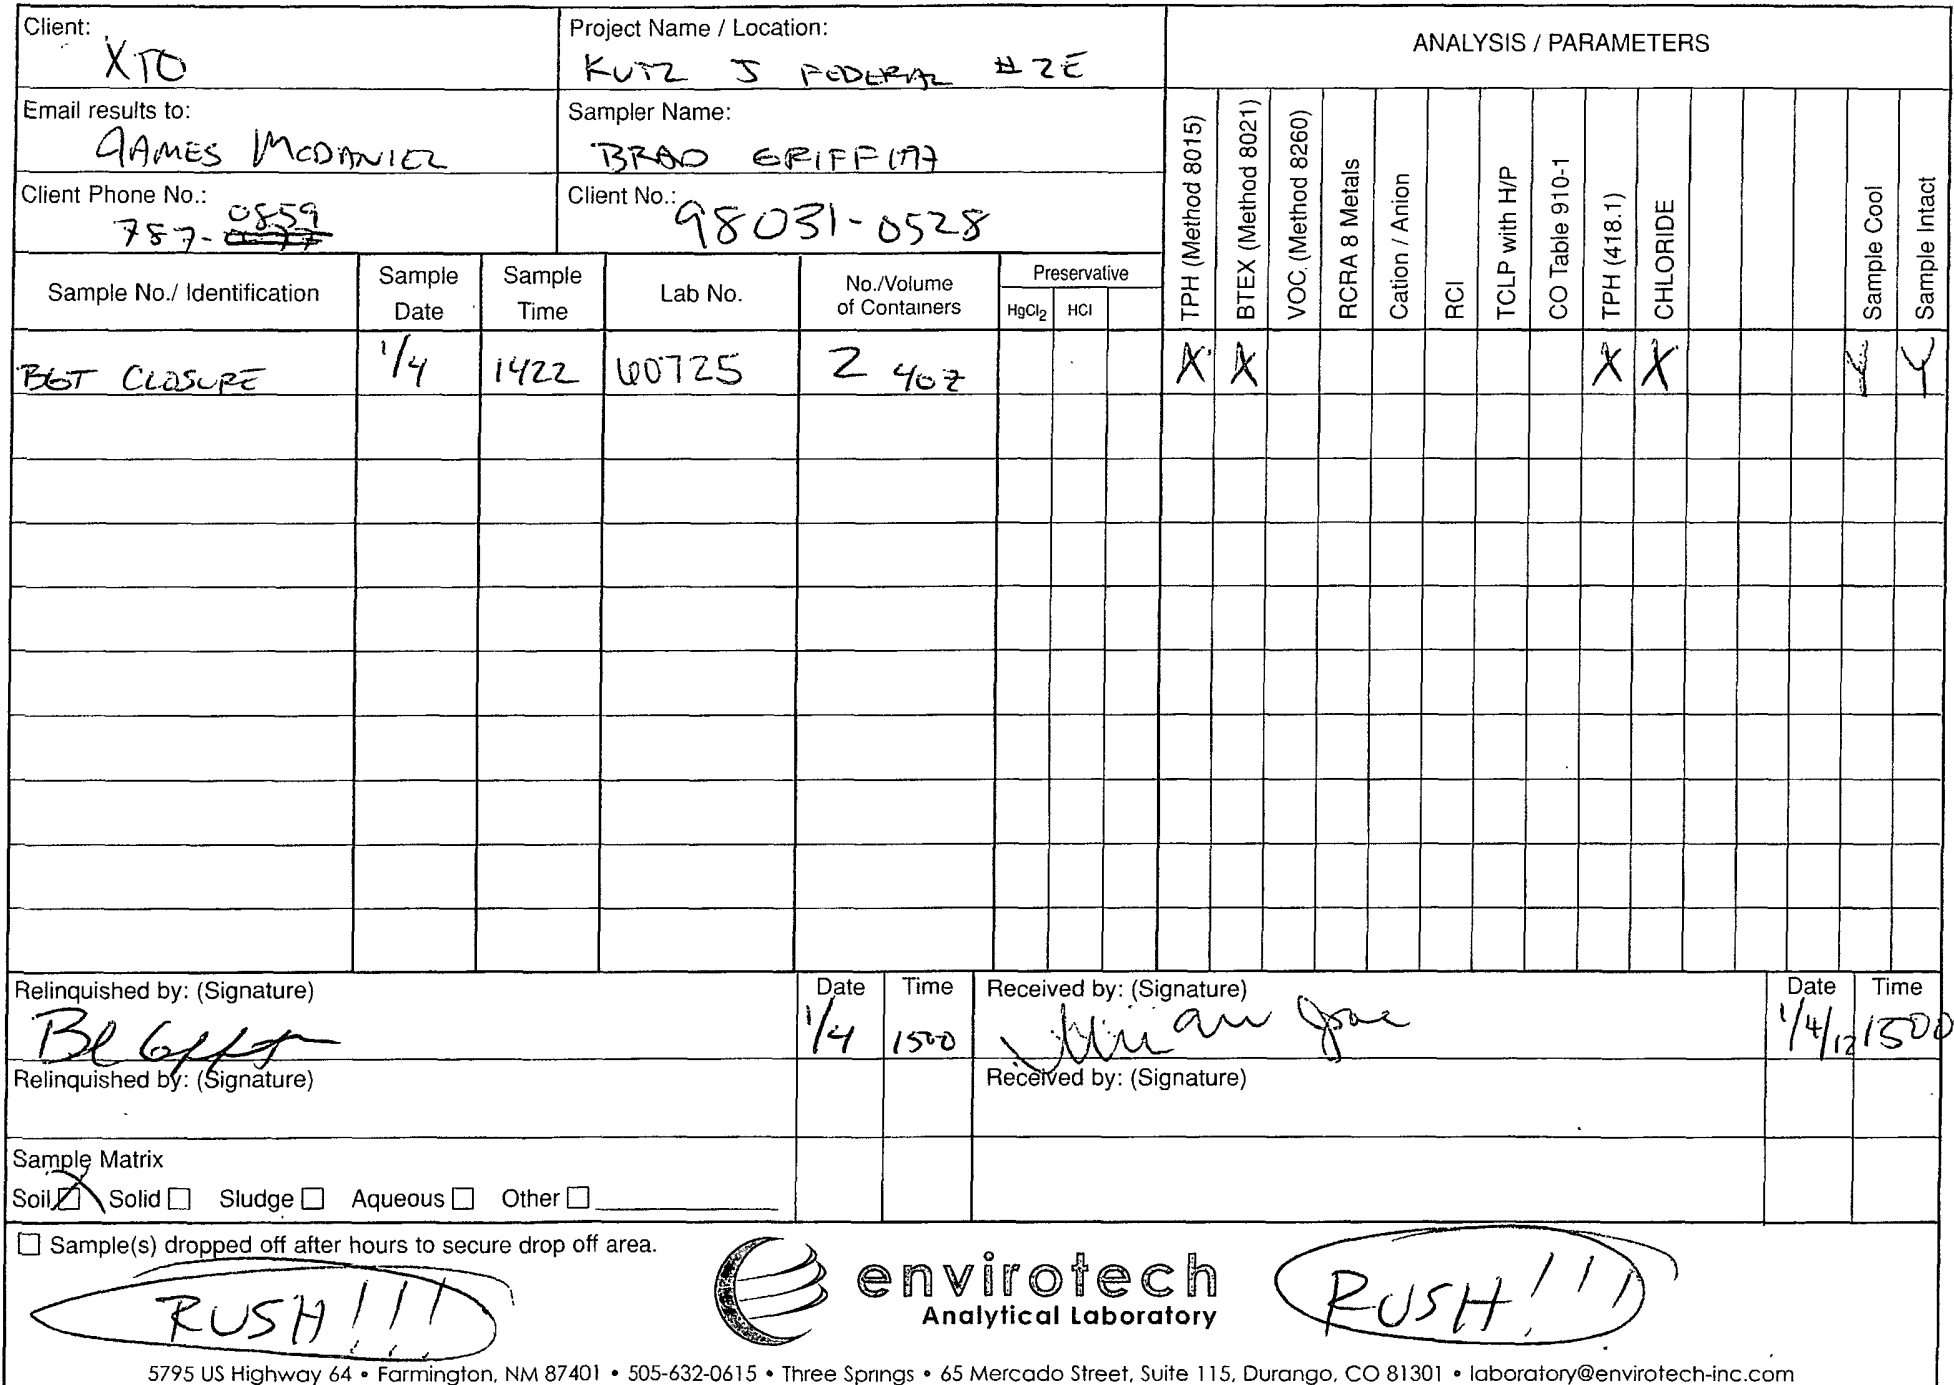 Client: XTO
Project Name / Location: KUTZ J FEDERAL #2E
ANALYSIS / PARAMETERS
Email results to: JAMES MCDANIEL
Sampler Name: BRAD GRIFFITH
Client Phone No.: 787-0859
Client No.: 98031-0528
Sample No./ Identification
Sample Date
Sample Time
Lab No.
No./Volume of Containers
Preservative
HgCl2 HCl
TPH (Method 8015)
BTEX (Method 8021)
VOC (Method 8260)
RCRA 8 Metals
Cation / Anion
RCI
TCLP with H/P
CO Table 910-1
TPH (418.1)
CHLORIDE
Sample Cool
Sample Intact
BGT CLOSURE 1/4 1422 60725 2 4oz X X X X Y Y
Relinquished by: (Signature) Date 1/4 Time 1500
Received by: (Signature) Date 1/4/12 Time 1500
Relinquished by: (Signature)
Received by: (Signature)
Sample Matrix
Soil X Solid Sludge Aqueous Other
Sample(s) dropped off after hours to secure drop off area.
RUSH!!!
envirotech
Analytical Laboratory
RUSH!!!
5795 US Highway 64 • Farmington, NM 87401 • 505-632-0615 • Three Springs • 65 Mercado Street, Suite 115, Durango, CO 81301 • laboratory@envirotech-inc.com